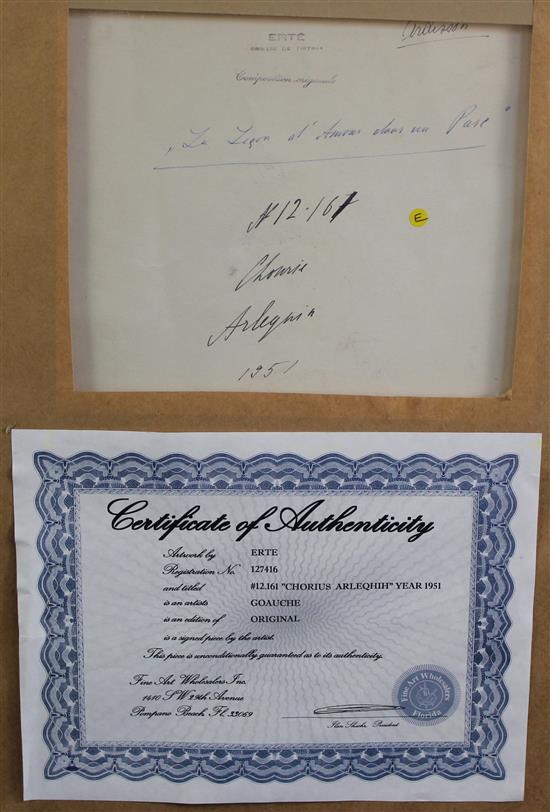 ERTÉ
Composition originale
„La Leçon d'Amour dans un Parc"
N12-167
E
Arlequin
1951
Certificate of Authenticity
Artwork by ERTE
Registration No. 127416
and titled #12.161 "CHORIUS ARLEQHIH" YEAR 1951
is an artists GOAUCHE
is an edition of ORIGINAL
is a signed piece by the artist.
This piece is unconditionally guaranteed as to its authenticity.
Fine Art Wholesalers Inc.
1410 S.W 29th Avenue
Pompano Beach, Fl. 33069
President
Fine Art Wholesalers
Florida